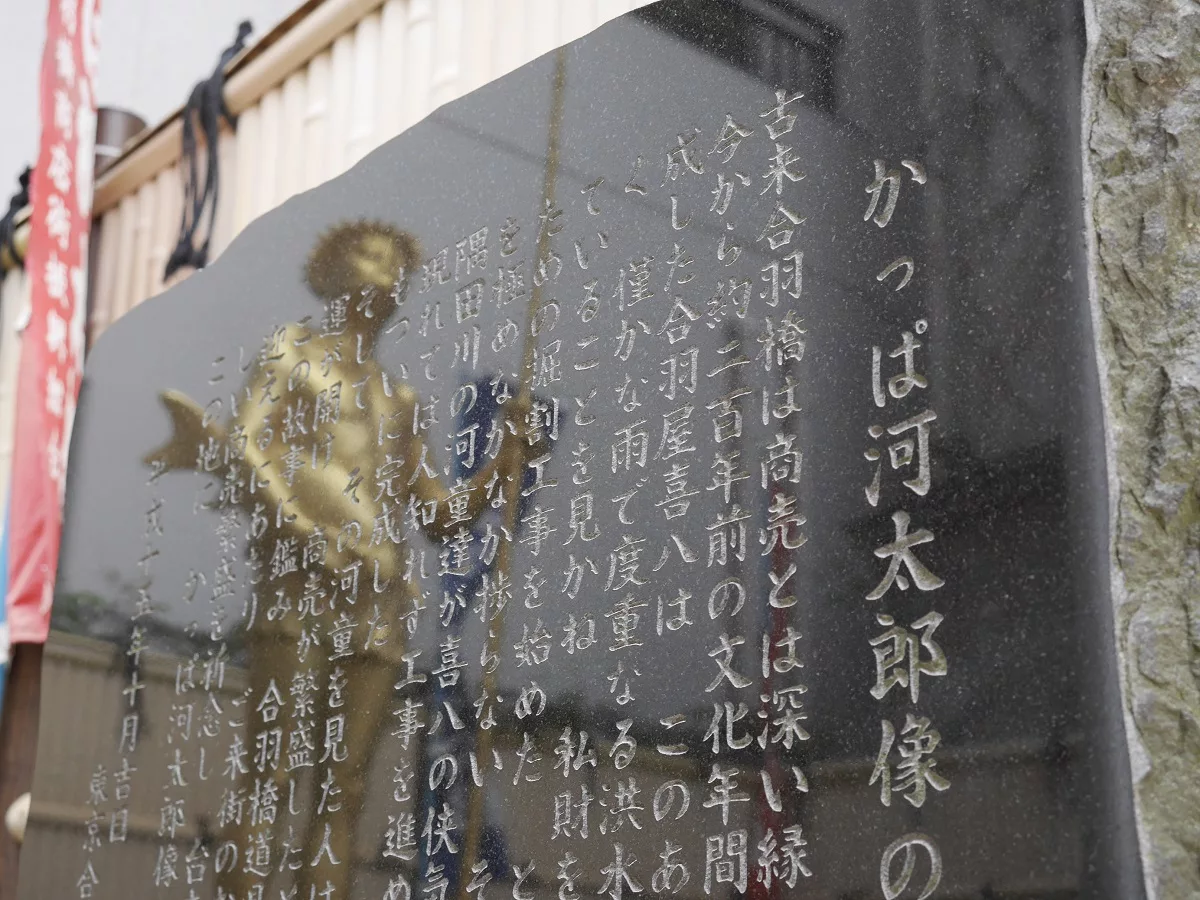 かっぱ河太郎像の
古来合羽橋は商売とは深い縁
今から約二百年前の文化年間
成した合羽屋喜八は このあ
く 僅かな雨で度重なる洪水
ていることを見かね 私財を
ための掘割工事を始めた と
を極めなかなか捗らない そ
隅田川の河童達が喜八の侠気
現れては人知れず工事を進め
もついに完成した
そして その河童を見た人は
運が開け 商売が繁盛したと
この故事に鑑み 合羽橋道具
迎えるにあたり ご来街の
しい商売繁盛を祈念し
この地に かっぱ河太郎像
平成十五年十月吉日
東京合